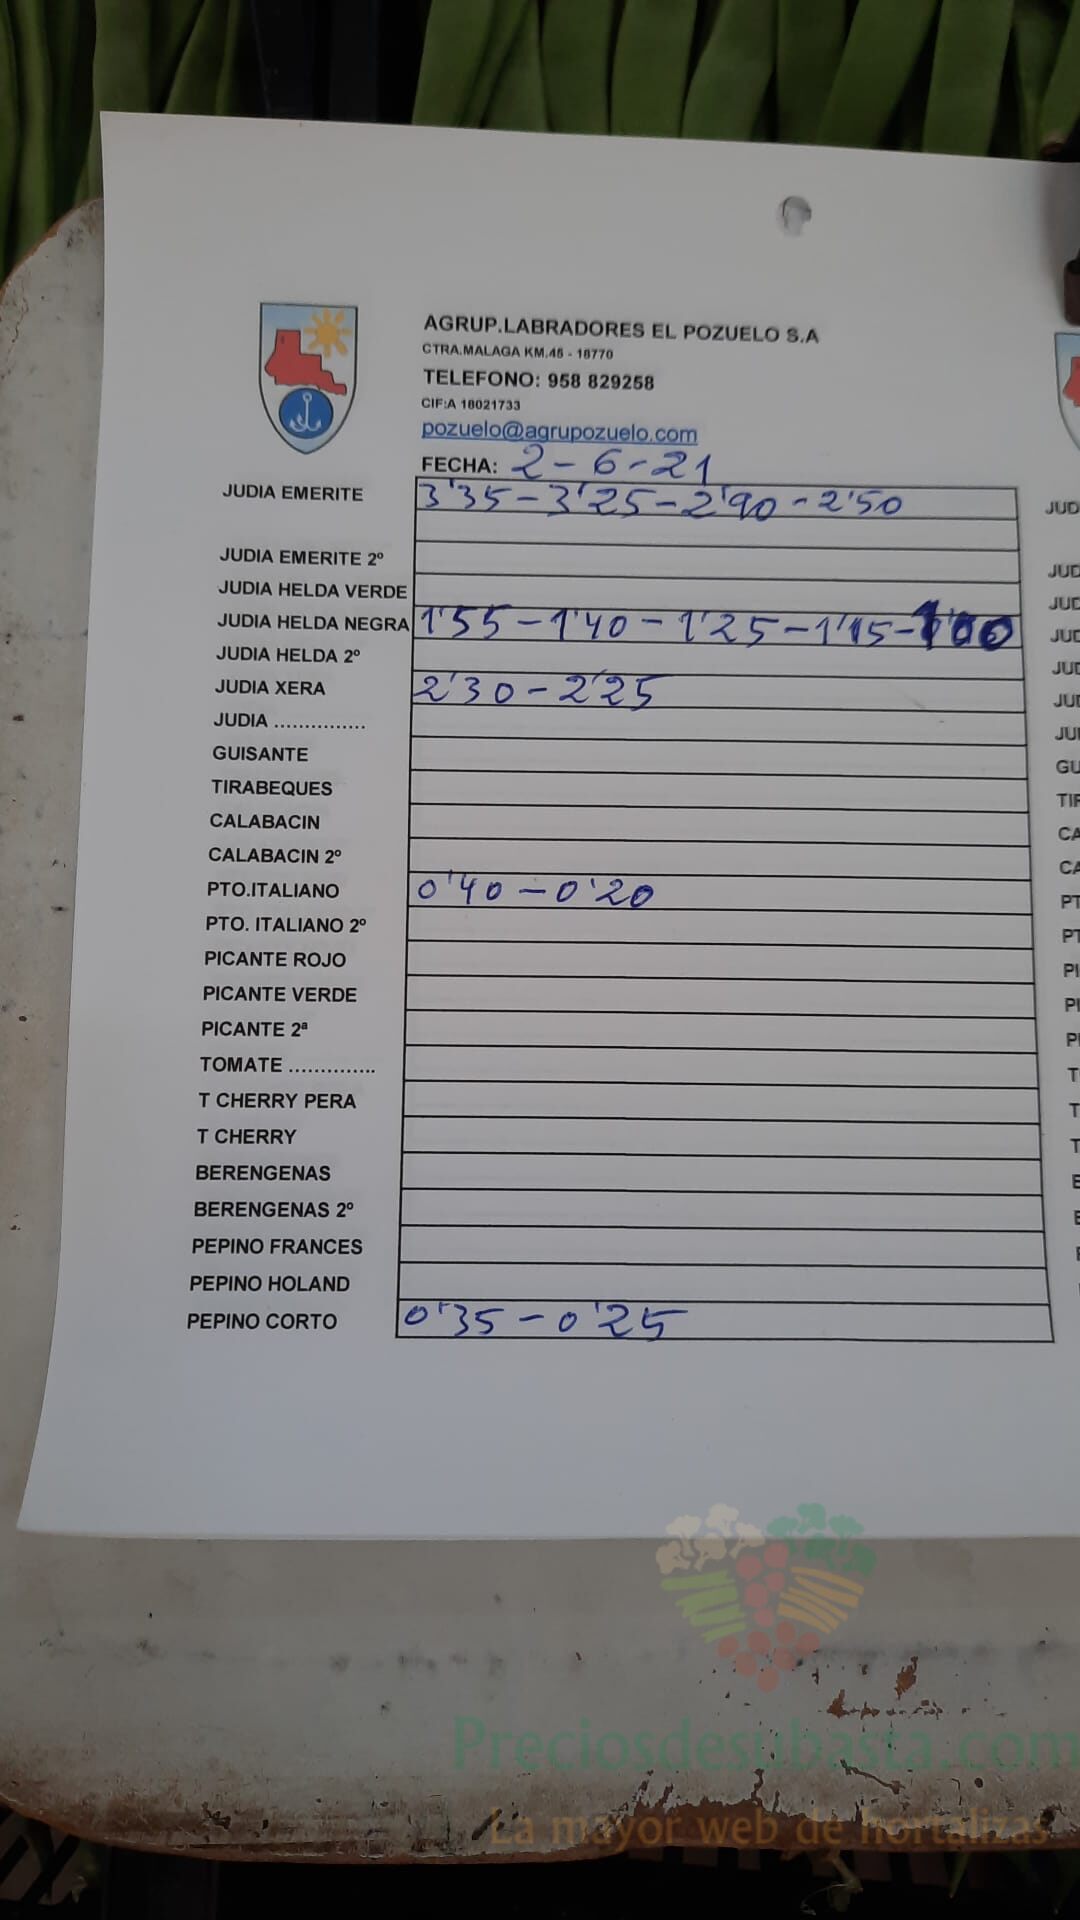 AGRUP.LABRADORES EL POZUELO S.A
CTRA.MALAGA KM.45 - 18770
TELEFONO: 958 829258
CIF:A 18021733
pozuelo@agrupozuelo.com
FECHA: 2-6-21
JUDIA EMERITE 3'35-3'25-2'90-2'50
JUDIA EMERITE 2º
JUDIA HELDA VERDE
JUDIA HELDA NEGRA 1'55-1'40-1'25-1'15-1'00
JUDIA HELDA 2º
JUDIA XERA 2'30-2'25
JUDIA ...............
GUISANTE
TIRABEQUES
CALABACIN
CALABACIN 2º
PTO.ITALIANO 0'40-0'20
PTO. ITALIANO 2º
PICANTE ROJO
PICANTE VERDE
PICANTE 2ª
TOMATE ..............
T CHERRY PERA
T CHERRY
BERENGENAS
BERENGENAS 2º
PEPINO FRANCES
PEPINO HOLAND
PEPINO CORTO 0'35-0'25
Preciosdesubasta.com
La mayor web de hortalizas